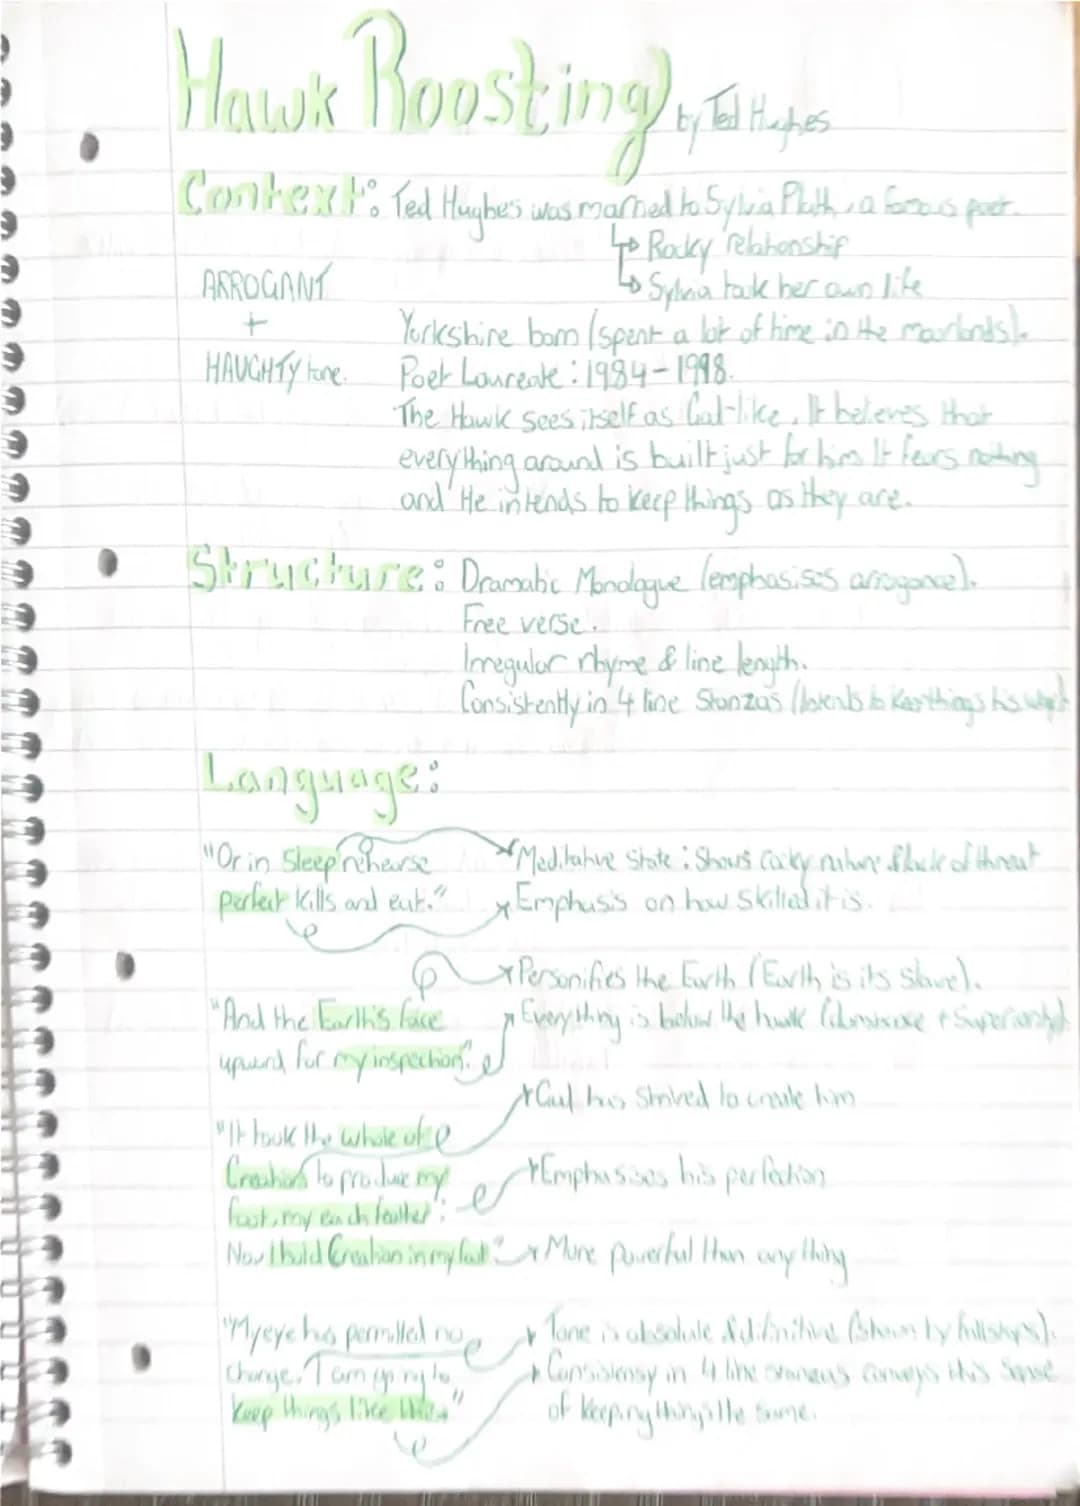 Hawk Roosting by Ted Hughes
Context: Ted Hughes was married to Sylvia Plath, a famous poet.
↳ Rocky relationship
↳ Sylvia took her own life
ARROGANT
+
HAUGHTY tone.
Yorkshire born (spent a lot of time in the moorlands).
Poet Laureate: 1984-1998.
The Hawk sees itself as God-like. It believes that
everything around is built just for him It fears nothing
and He intends to keep things as they are.
Structure: Dramatic Monologue (emphasises arrogance).
Free verse.
Irregular rhyme & line length.
Consistently in 4 line Stanzas (Intends to keep things his way)
Language:
"Or in Sleep rehearse
perfect kills and eat."
Meditative State: Shows cocky nature & lack of threat
Emphasis on how skilled it is.
"And the Earth's face
upward for my inspection."
Personifies the Earth (Earth is its slave).
Everything is below the hawk (dominance + Superiority).
"It took the whole of
Creation to produce my
foot, my each feather:
Now I hold Creation in my foot"
God has strived to create him
Emphasises his perfection
More powerful than anything
"My eye has permitted no
change. I am going to
keep things like this"
Tone is absolute & definitive (shown by fullstops).
Consistency in 4 line stanzas conveys this sense
of keeping things the same.